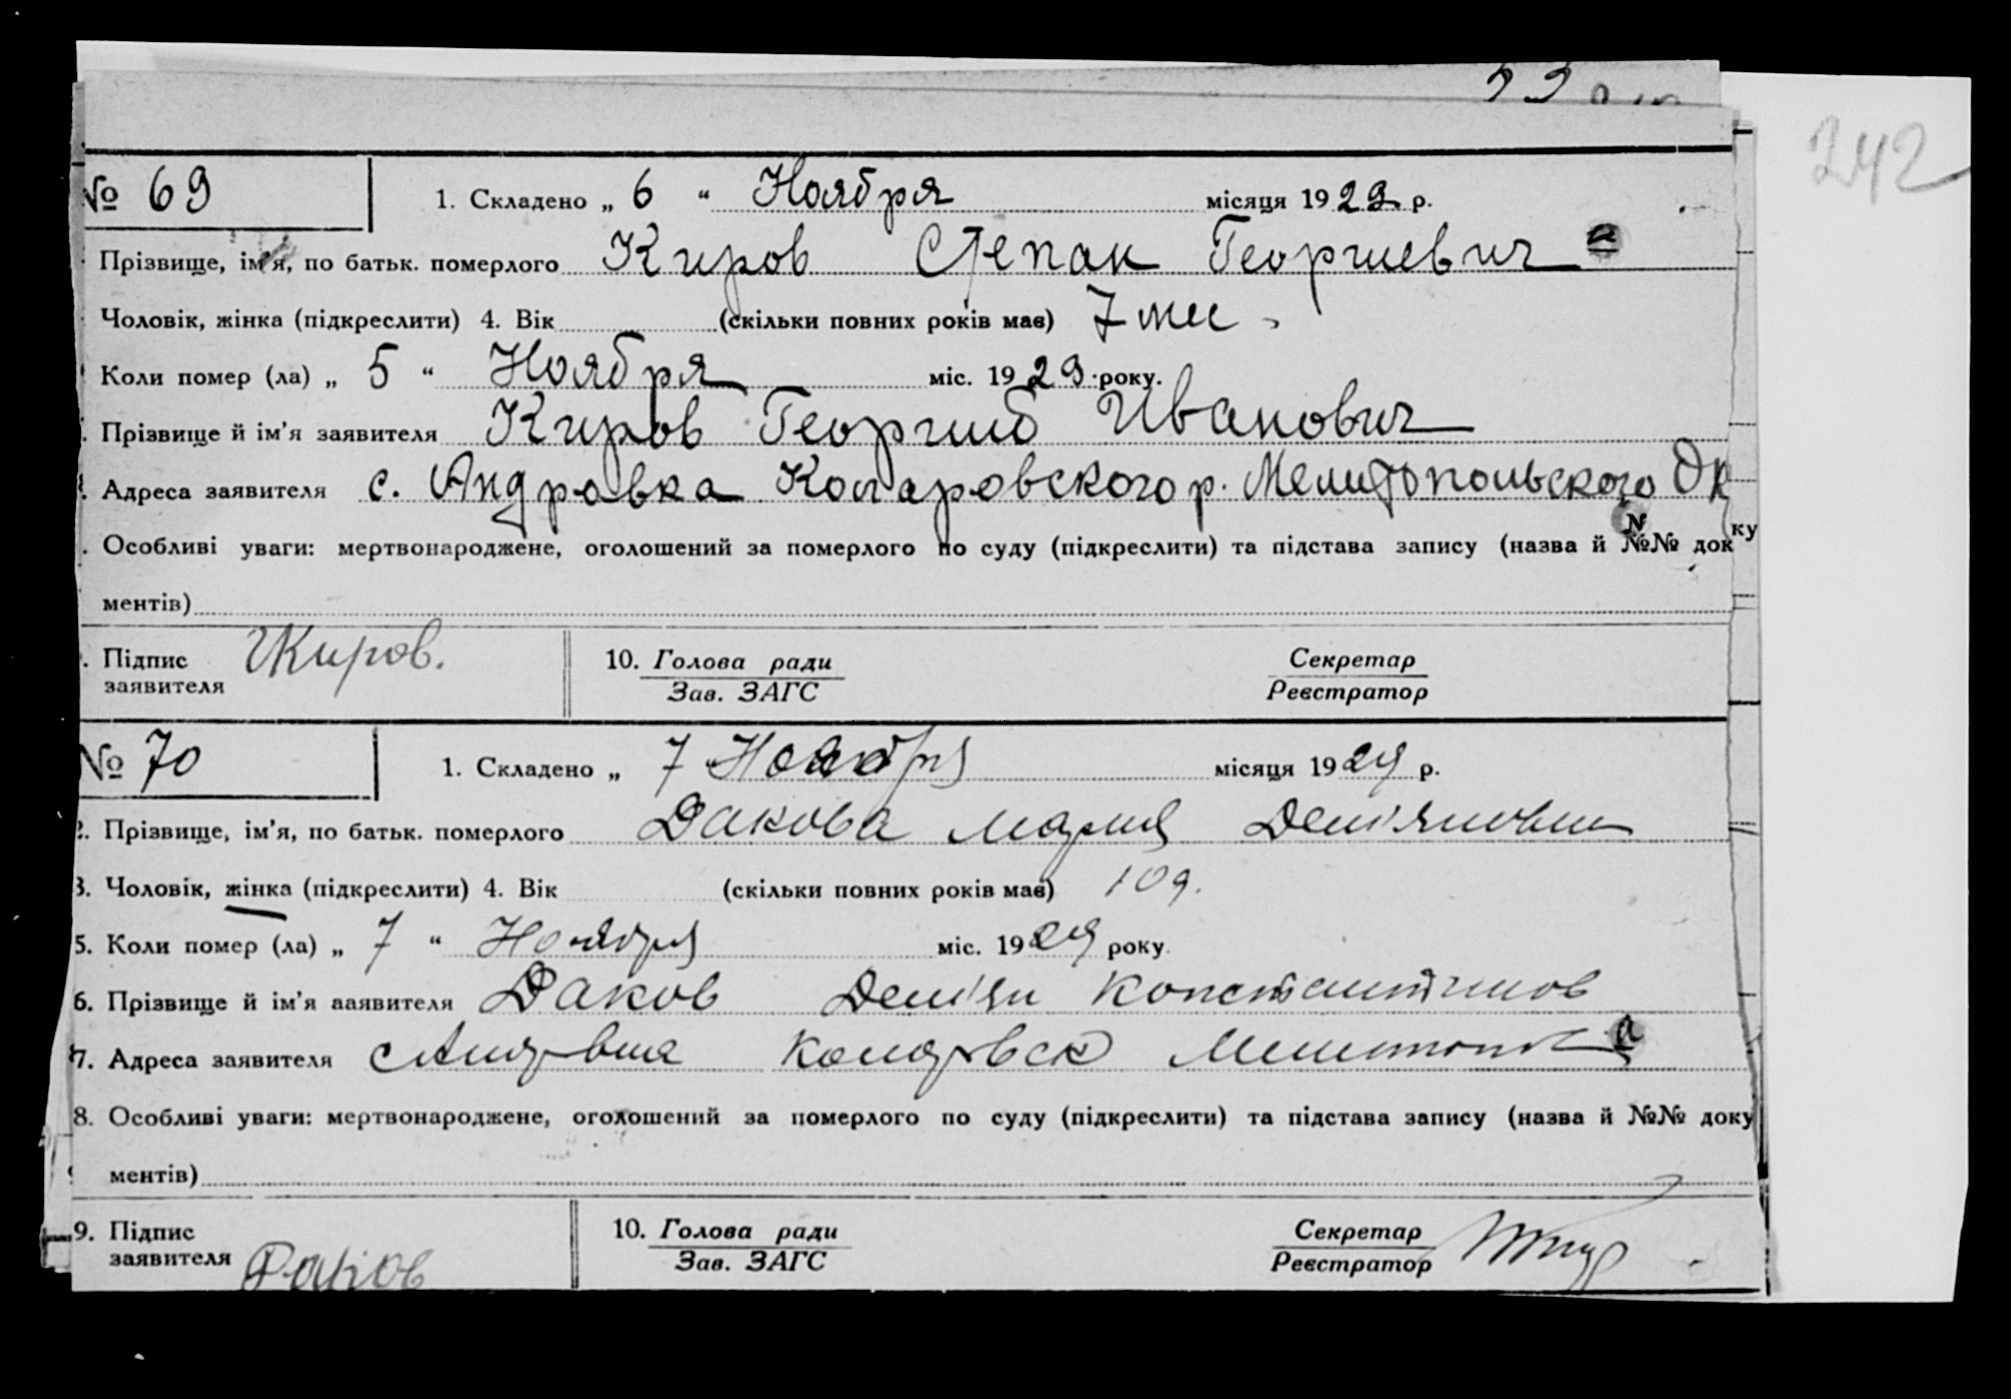 242
№ 69 1. Складено „ 6 " Ноября місяця 1929 р.
Прізвище, ім'я, по батьк. померлого Киров Степан Георгиевич
Чоловік, жінка (підкреслити) 4. Вік (скільки повних років має) 7 мис.
Коли помер (ла) „ 5 " Ноября міс. 1929 року.
Прізвище й ім'я заявителя Киров Георгий Иванович
Адреса заявителя с. Андровка Коларовского р. Мелитопольского Ок
Особливі уваги: мертвонароджене, оголошений за померлого по суду (підкреслити) та підстава запису (назва й №№ док
ментів)
Підпис заявителя Киров. 10. Голова ради Зав. ЗАГС Секретар Реєстратор
№ 70 1. Складено „ 7 Ноября місяця 1929 р.
2. Прізвище, ім'я, по батьк. померлого Дакова Мария Дем'яновна
3. Чоловік, жінка (підкреслити) 4. Вік (скільки повних років має) 10 д.
5. Коли помер (ла) „ 7 " Ноября міс. 1929 року.
6. Прізвище й ім'я ааявителя Даков Дем'ян Константинов
7. Адреса заявителя с Андровка Коларовск
8. Особливі уваги: мертвонароджене, оголошений за померлого по суду (підкреслити) та підстава запису (назва й №№ доку
ментів)
9. Підпис заявителя Даков 10. Голова ради Зав. ЗАГС Секретар Реєстратор